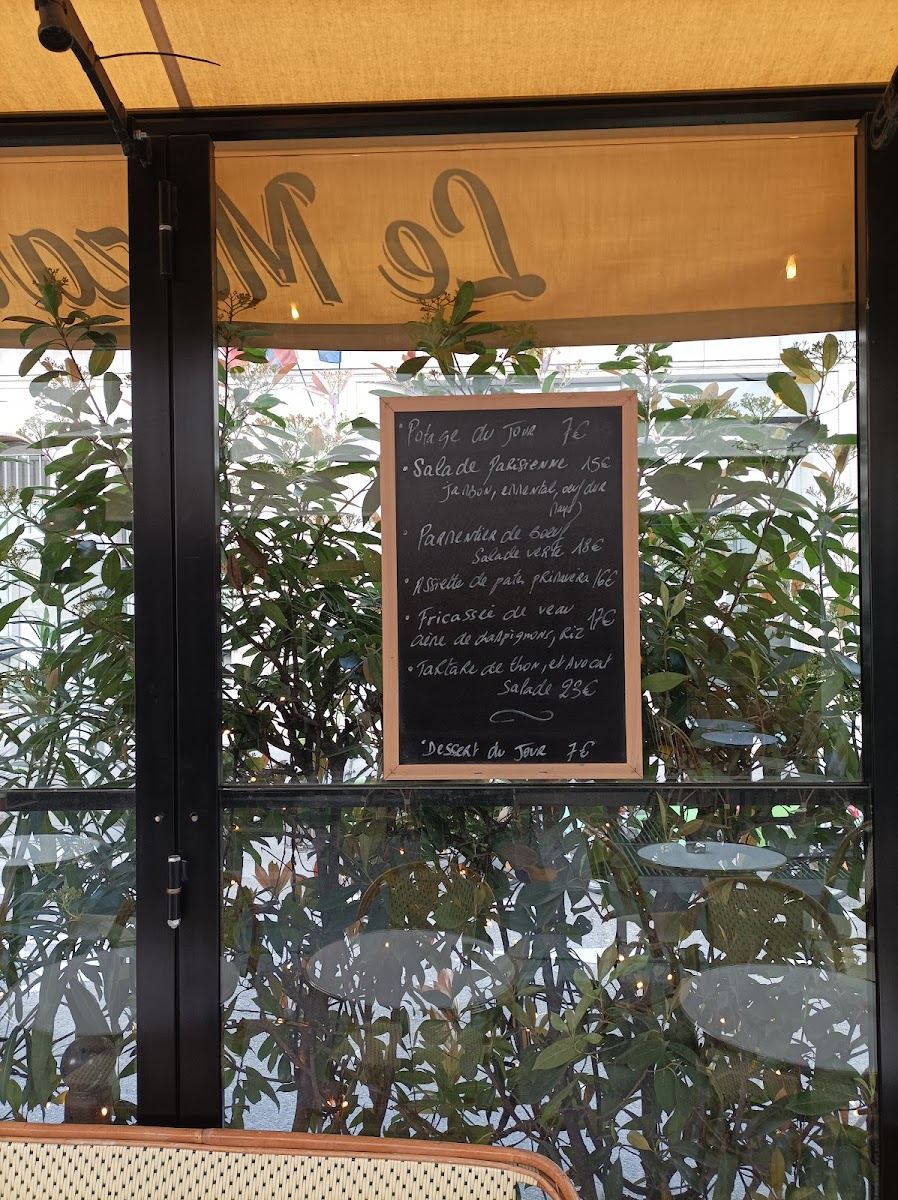 Le Mazar
• Potage du Jour 7€
• Salade Parisienne 15€
Jambon, emmental, oeuf dur
Mayo)
• Parmentier de boeuf
Salade verte 18€
• Assiette de pates primavera 16€
• Fricassée de veau 17€
crème de champignons, Riz
• Tartare de thon, et Avocat
Salade 23€
• Dessert du Jour 7€